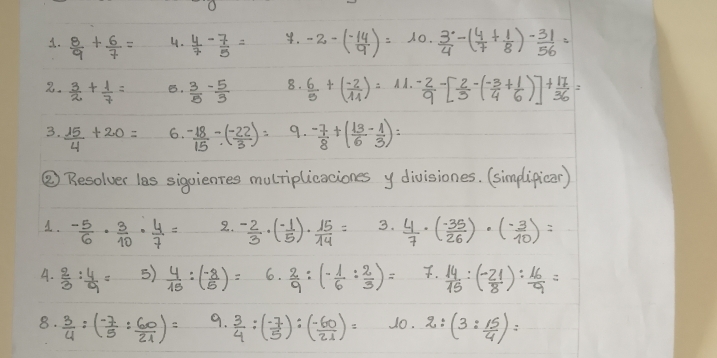 1. 8/9 + 6/7 = 4. 4/7 - 7/5 = 7. -2 - (-14/9) = 10. 3/4 - (4/7 + 1/8) - 31/56 =
2. 3/2 + 1/7 = 5. 3/5 - 5/3 8. 6/5 + (-2/11) = 11. -2/9 - [2/3 - (-3/4 + 1/6)] + 17/36 =
3. 15/4 + 20 = 6. -18/15 - (-22/3) = 9. -7/8 + (13/6 - 1/3) =
② Resolver las siguientes multiplicaciones y divisiones. (simplificar)
1. -5/6 · 3/10 · 4/7 = 2. -2/3 · (-1/5) · 15/14 = 3. 4/7 · (-35/26) · (-3/10) =
4. 2/3 : 4/9 = 5) 4/15 : (-8/5) = 6. 2/9 : (-1/6 : 2/3) = 7. 14/15 : (-21/8) : 16/9 =
8. 3/4 : (-7/5 : 60/21) = 9. 3/4 : (-7/5) : (-60/21) = 10. 2 : (3 : 15/4) =